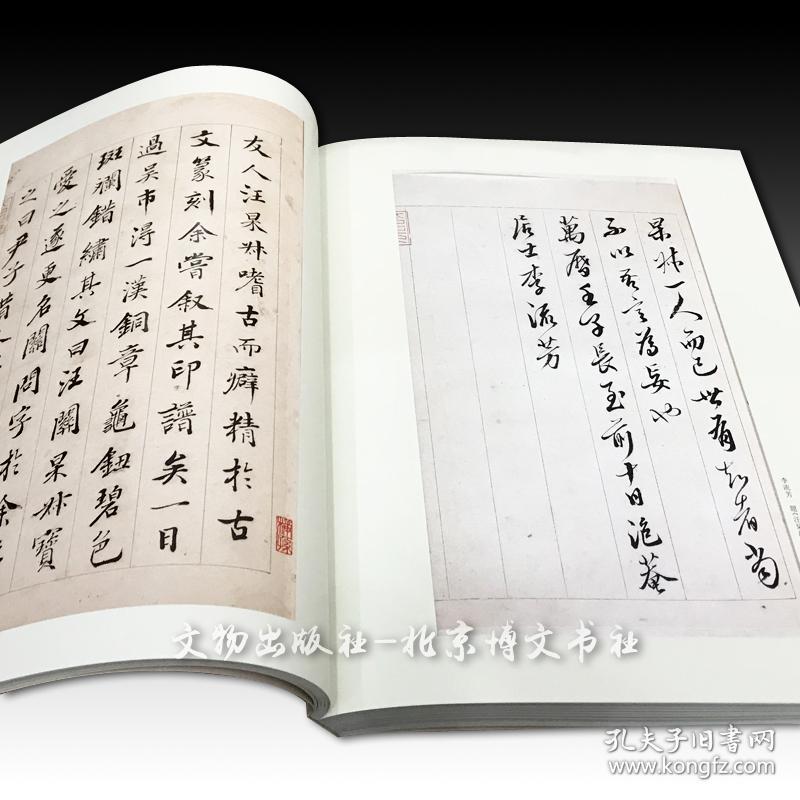 友人汪杲叔嗜古而癖精於古
文篆刻余嘗叙其印譜矣一日
過吴市淂一漢銅章龜鈕碧色
斑斕錯繡其文曰汪關杲叔寶
愛之遂更名關問字於余
之曰尹子昔
杲叔一人而已世有知者當
不以吾言為妄也
萬曆壬子長至前十日泡菴
居士李流芳
李流芳 題汪
文物出版社-北京博文书社
孔夫子旧书网
www.kongfz.com